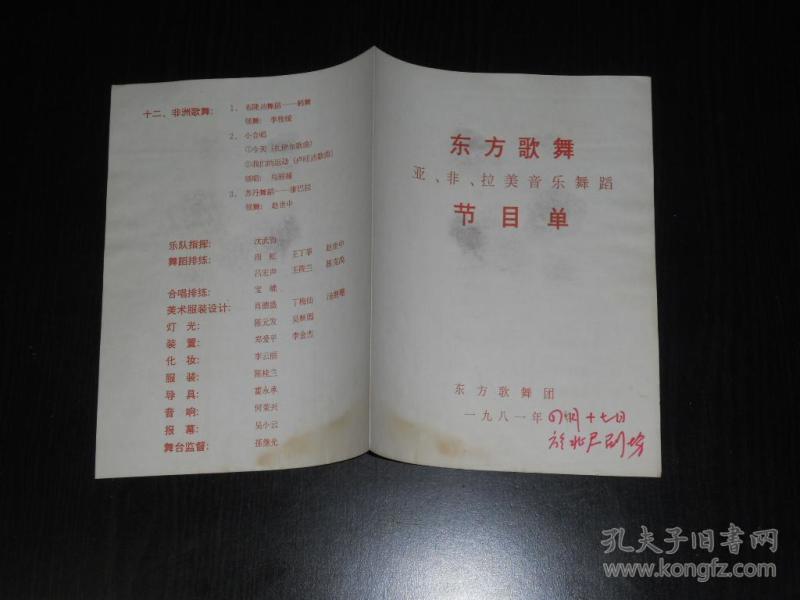 十二、非洲歌舞:
1、布隆迪舞蹈——鹤舞
领舞:
2、小合唱
①今天(扎伊尔歌曲)
②我们的运动(卢旺达歌曲)
领唱:
3、苏丹舞蹈——
领舞: 赵世中
乐队指挥:
舞蹈排练: 王丁菲 赵世中
吕艺声 王筱兰
合唱排练:
美术服装设计:
灯光: 陈元发
装置: 邓爱平 李金杰
化妆: 李云丽
服装: 陈桂兰
导具: 霍永承
音响: 何荣兴
报幕: 吴小云
舞台监督: 孙继光
东方歌舞
亚、非、拉美音乐舞蹈
节目单
东方歌舞团
一九八一年 四月十七日
於北民剧场
孔夫子旧书网
www.kongfz.com